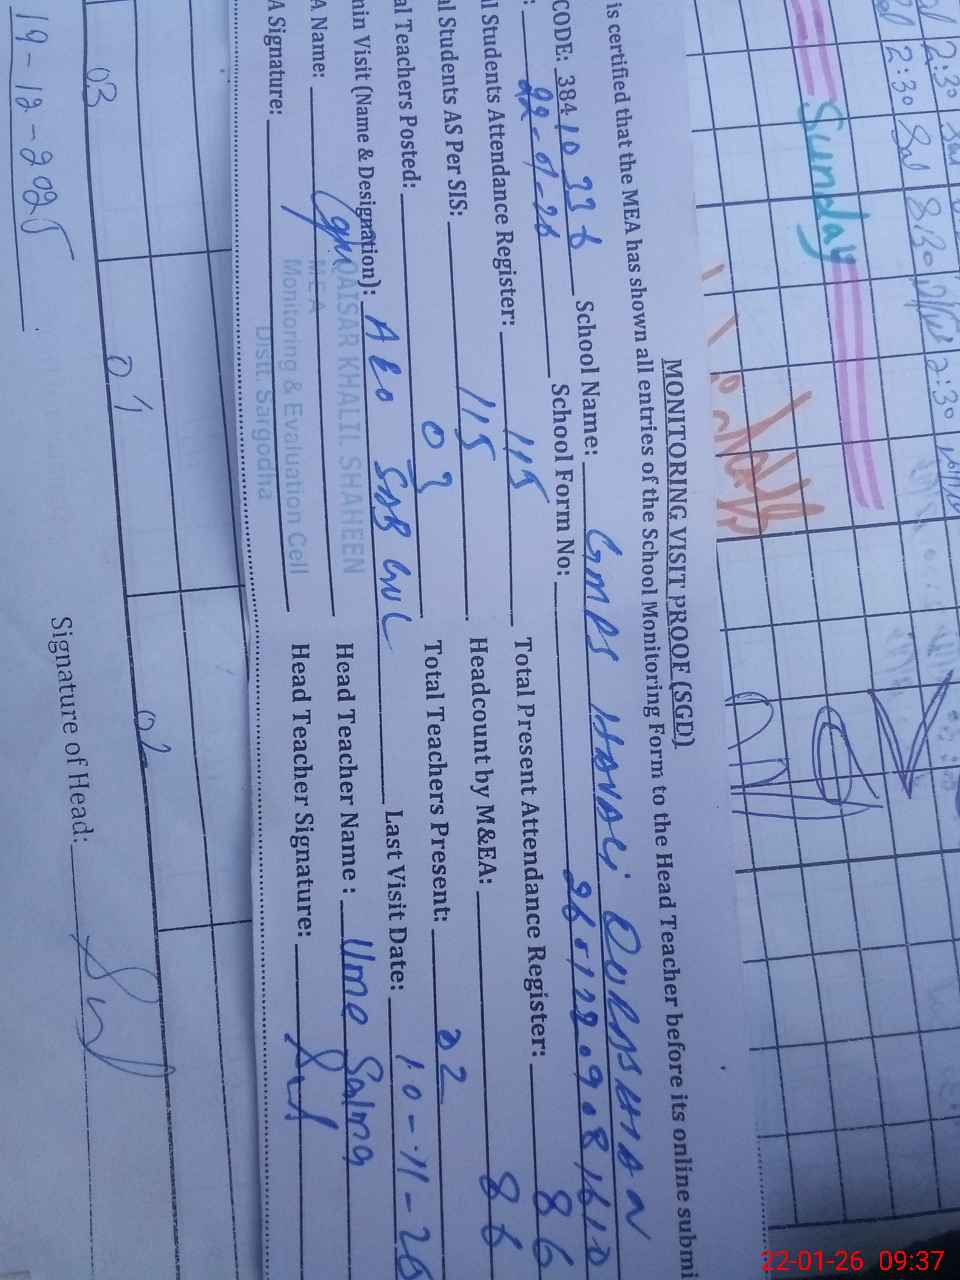 MONITORING VISIT PROOF (SGD)
is certified that the MEA has shown all entries of the School Monitoring Form to the Head Teacher before its online submi
CODE: 38410336 School Name: GMPS HANDCI QURESHIAN
: 22-01-26 School Form No: 26-122.9.081610
l Students Attendance Register: 115 Total Present Attendance Register: 86
al Students AS Per SIS: 115 Headcount by M&EA: 86
al Teachers Posted: 03 Total Teachers Present: 02
min Visit (Name & Designation): AEO Last Visit Date: 10-11-25
A Name: Head Teacher Name: Ume Salma
A Signature: Head Teacher Signature:
QAISAR KHALIL SHAHEEN
MEA
Monitoring & Evaluation Cell
Distt. Sargodha
03 01 02
19-12-2025 Signature of Head:
Sunday
2:30
2:30 8:30 2:30
22-01-26 09:37